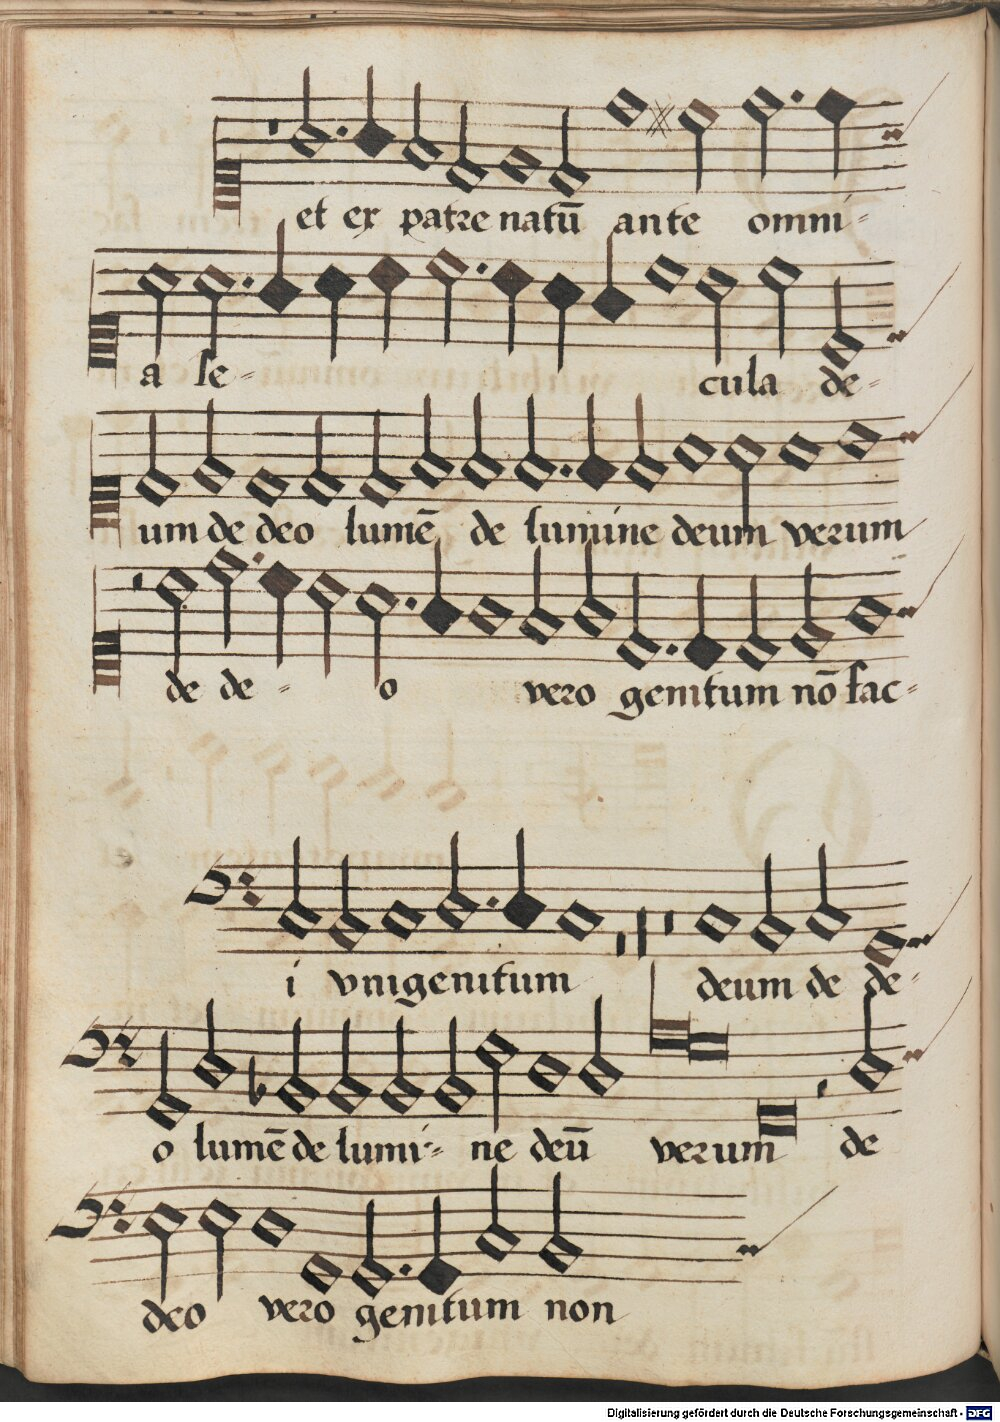 et ex patre natū ante omni-
a se- cula de-
um de deo lumē de lumine deum verum
de de- o vero genitum nō fac-
i vnigenitum deum de de-
o lumē de lumi- ne deū verum de
deo vero genitum non
Digitalisierung gefördert durch die Deutsche Forschungsgemeinschaft - DFG